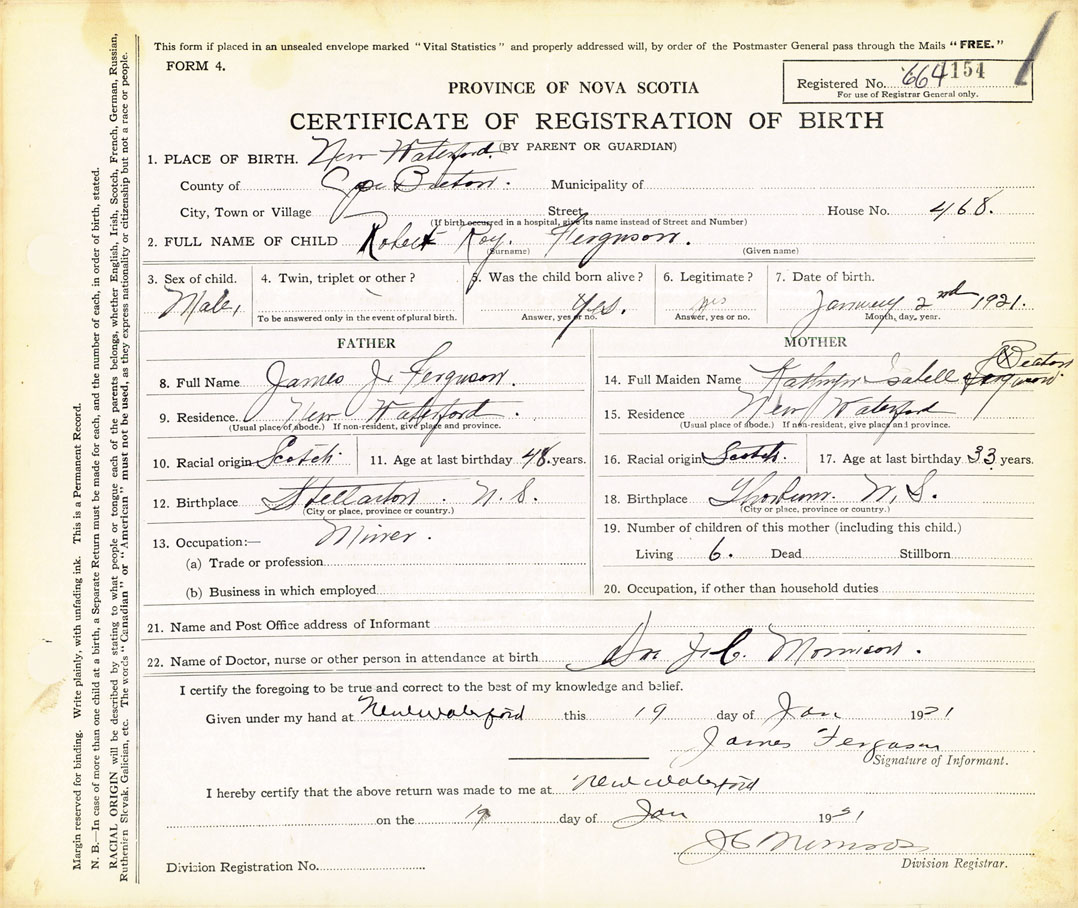 This form if placed in an unsealed envelope marked "Vital Statistics" and properly addressed will, by order of the Postmaster General pass through the Mails "FREE."
FORM 4.
Registered No. 664 154
For use of Registrar General only.
PROVINCE OF NOVA SCOTIA
CERTIFICATE OF REGISTRATION OF BIRTH
(BY PARENT OR GUARDIAN)
1. PLACE OF BIRTH. New Waterford.
County of Cape Breton. Municipality of
City, Town or Village Street House No. 468.
(If birth occurred in a hospital, give its name instead of Street and Number)
2. FULL NAME OF CHILD Robert Roy. Ferguson.
(Surname) (Given name)
3. Sex of child. 4. Twin, triplet or other? 5. Was the child born alive? 6. Legitimate? 7. Date of birth.
Male, Yes. yes January 2nd 1921.
To be answered only in the event of plural birth. Answer, yes or no. Answer, yes or no. Month, day, year.
FATHER
8. Full Name James J. Ferguson.
9. Residence. New Waterford.
(Usual place of abode.) If non-resident, give place and province.
10. Racial origin Scotch 11. Age at last birthday 48. years.
12. Birthplace Stellarton. N. S.
(City or place, province or country.)
13. Occupation:— Miner.
(a) Trade or profession
(b) Business in which employed
MOTHER
14. Full Maiden Name Kathryn Isabell Ferguson Beaton
15. Residence New Waterford
(Usual place of abode.) If non-resident, give place and province.
16. Racial origin Scotch. 17. Age at last birthday 33 years.
18. Birthplace Thorburn. N. S.
(City or place, province or country.)
19. Number of children of this mother (including this child.)
Living 6. Dead Stillborn
20. Occupation, if other than household duties
21. Name and Post Office address of Informant
22. Name of Doctor, nurse or other person in attendance at birth J. C. Morrison.
I certify the foregoing to be true and correct to the best of my knowledge and belief.
Given under my hand at New Waterford this 19 day of Jan 1921
James Ferguson
Signature of Informant.
I hereby certify that the above return was made to me at New Waterford
on the 19 day of Jan 1921
J C Morrison
Division Registrar.
Division Registration No.
Margin reserved for binding. Write plainly, with unfading ink. This is a Permanent Record.
N. B.—In case of more than one child at a birth, a Separate Return must be made for each, and the number of each, in order of birth, stated.
RACIAL ORIGIN will be described by stating to what people or tongue each of the parents belongs, whether English, Irish, Scotch, French, German, Russian,
Ruthenian Slovak, Galician, etc. The words "Canadian" or "American" must not be used, as they express nationality or citizenship but not a race or people.